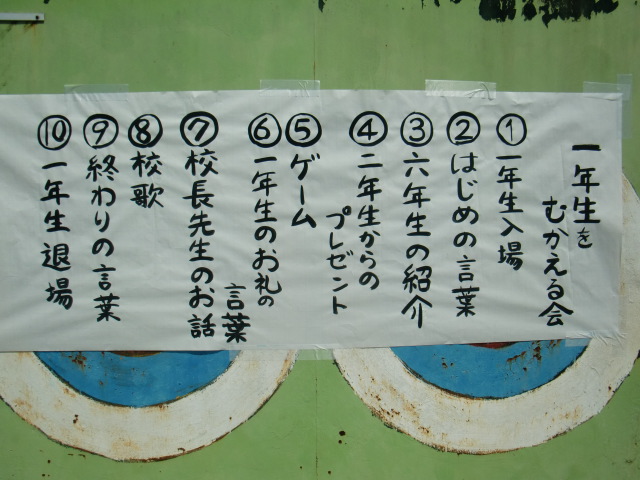 一年生を
むかえる会
①一年生入場
②はじめの言葉
③六年生の紹介
④二年生からの
プレゼント
⑤ゲーム
⑥一年生のお礼の
言葉
⑦校長先生のお話
⑧校歌
⑨終わりの言葉
⑩一年生退場